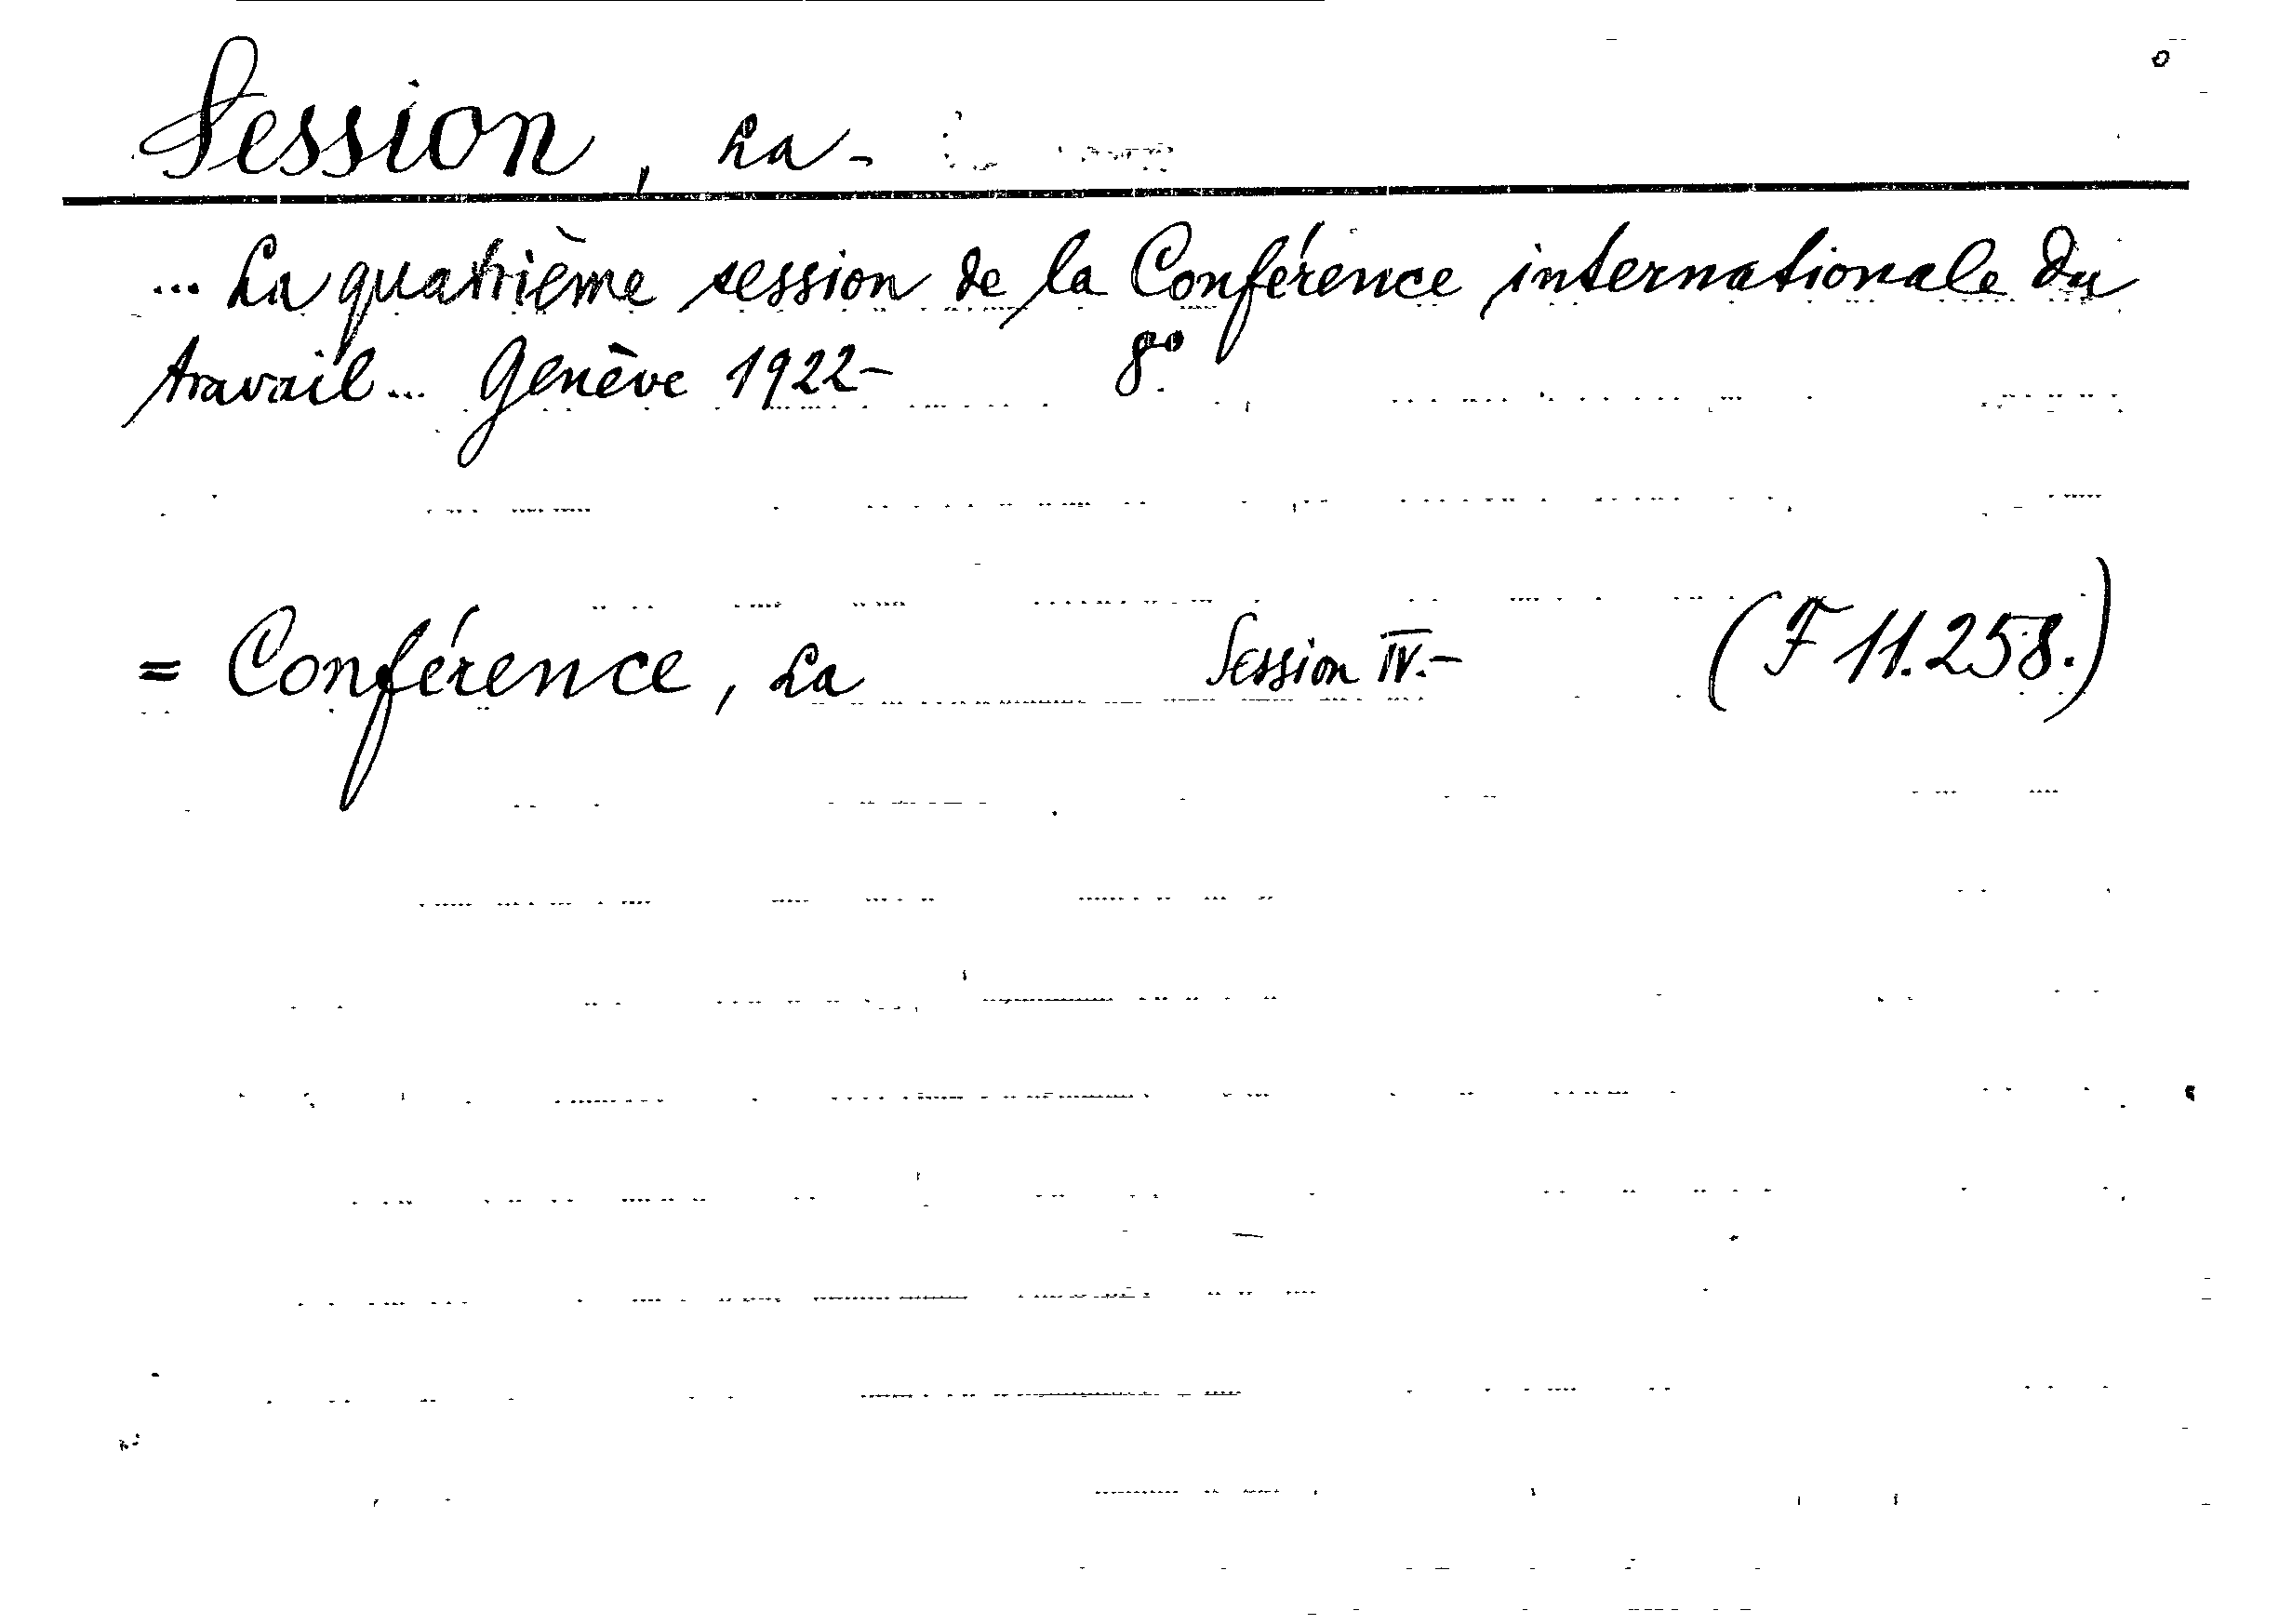 Session, La-
... La quatrième session de la Conférence internationale du
travail... Genève 1922- 8°
= Conférence, La Session IV.- (F 11.258.)